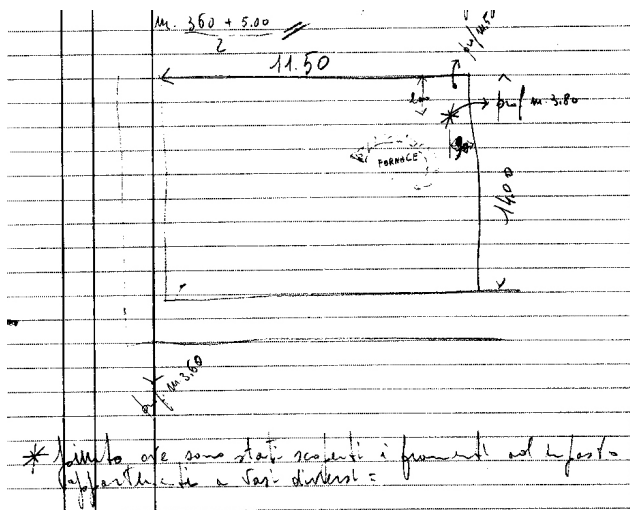 m. 360 + 5.00
2
11.50
prof m. 3.80
90
FORNACE
14.00
prof. m. 3,60
* punto ove sono stati scoperti i frammenti ad impasto
appartenenti a vasi diversi =